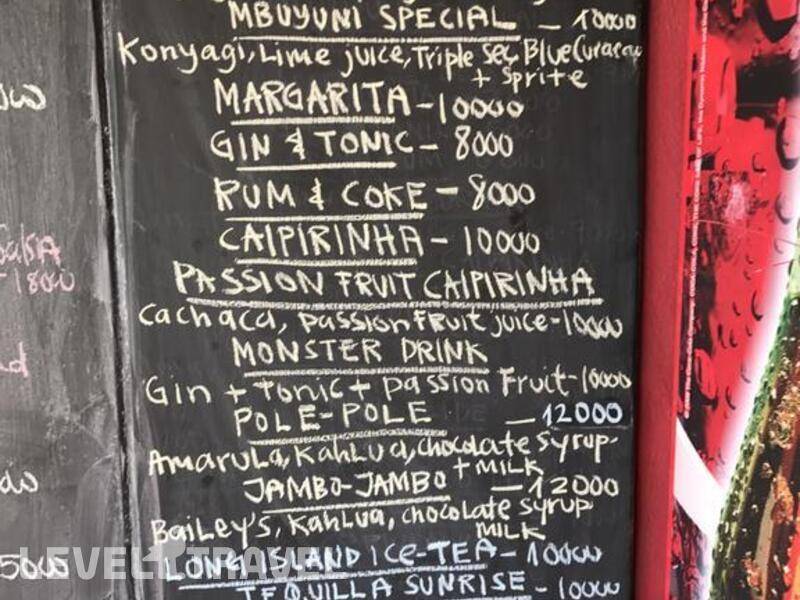 MBUYUNI SPECIAL - 10000
Konyagi, Lime juice, Triple Sec, Blue Curacau
+ Sprite
MARGARITA - 10000
GIN & TONIC - 8000
RUM & COKE - 8000
CAIPIRINHA - 10000
PASSION FRUIT CAIPIRINHA
Cachaca, passion fruit juice - 10000
MONSTER DRINK
Gin + Tonic + passion Fruit - 10000
POLE-POLE - 12000
Amarula, Kahlua, chocolate syrup
+ MILK
JAMBO-JAMBO - 12000
Bailey's, Kahlua, chocolate syrup
MILK
LONG ISLAND ICE-TEA - 10000
TEQUILLA SUNRISE - 10000
5000
LEVEL TRAVEL